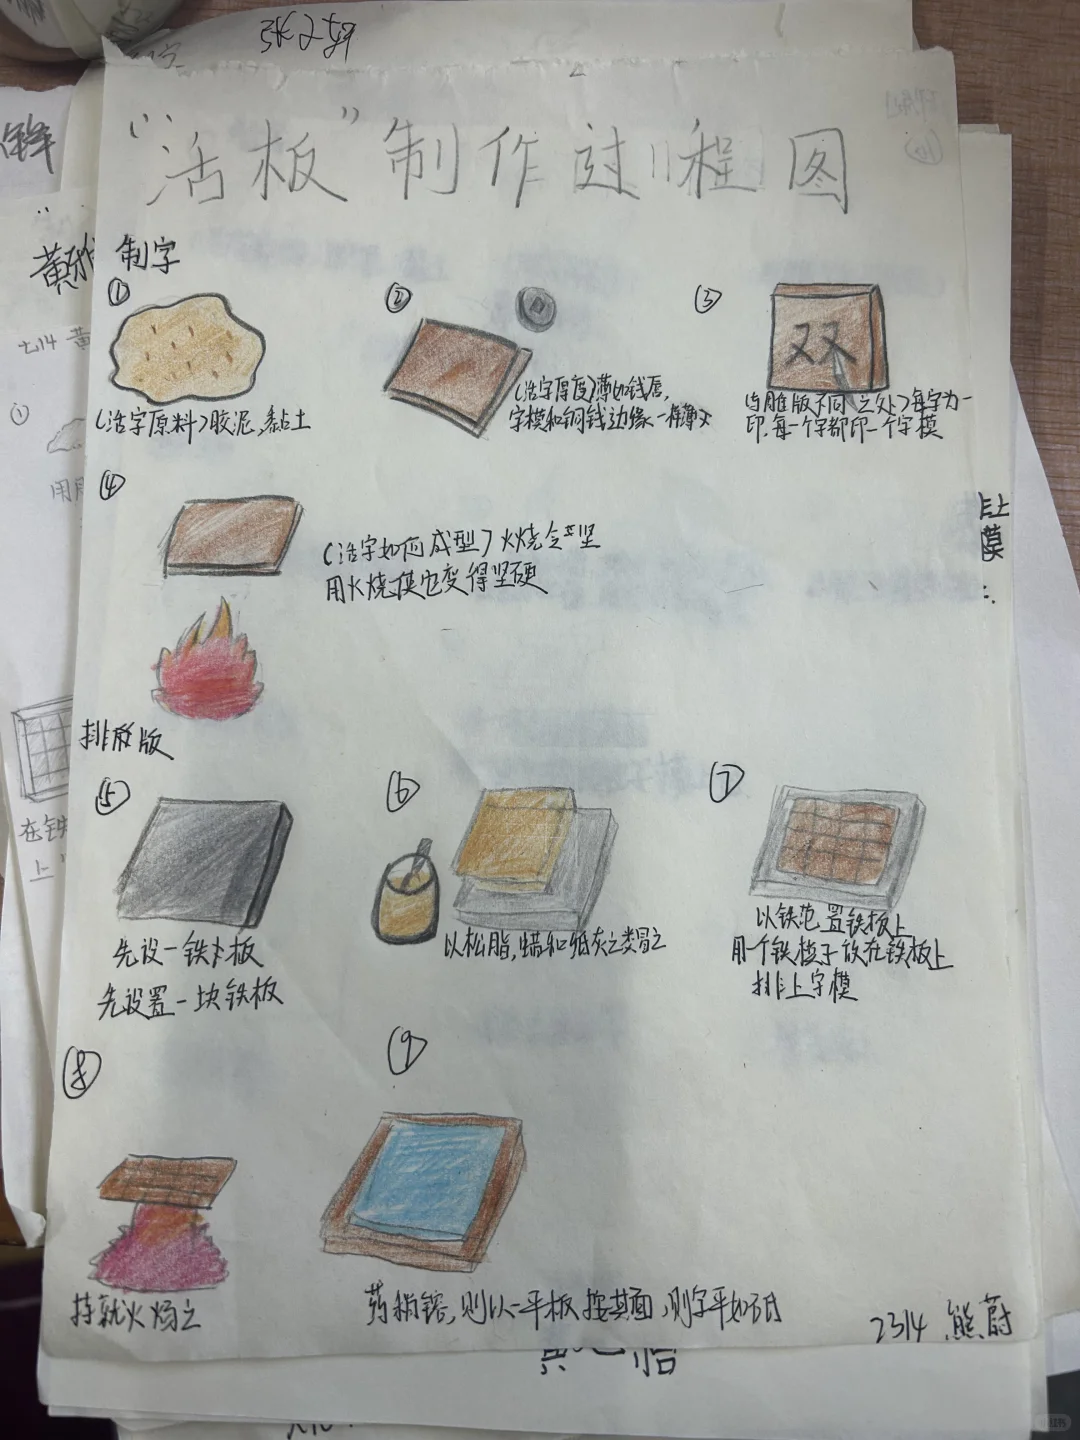 张
“活板”制作过程图
制字
①
(活字原料)胶泥,黏土
②
(活字厚度)薄如钱唇,
字模和铜钱边缘一样薄
③
与雕版不同之处)每字为一
印,每一个字都印一个字模
④
(活字如何成型)火烧令坚
用火烧使它变得坚硬
排版
⑤
先设一铁板
先设置一块铁板
⑥
以松脂,蜡和纸灰之类冒之
⑦
以铁范置铁板上
用一个铁框子放在铁板上
排上字模
⑧
持就火炀之
⑨
药稍熔,则以一平板按其面,则字平如砥
2314 熊蔚
黄
七14 黄
①
用
在铁
上